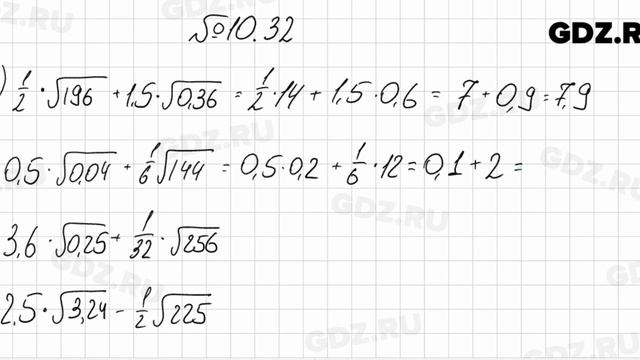 №10.32
GDZ.R
) 1/2 · √196 + 1,5 · √0,36 = 1/2 · 14 + 1,5 · 0,6 = 7 + 0,9 = 7,9
0,5 · √0,04 + 1/6 √144 = 0,5 · 0,2 + 1/6 · 12 = 0,1 + 2 =
3,6 · √0,25 + 1/32 · √256
2,5 · √3,24 - 1/2 √225
GDZ.RU